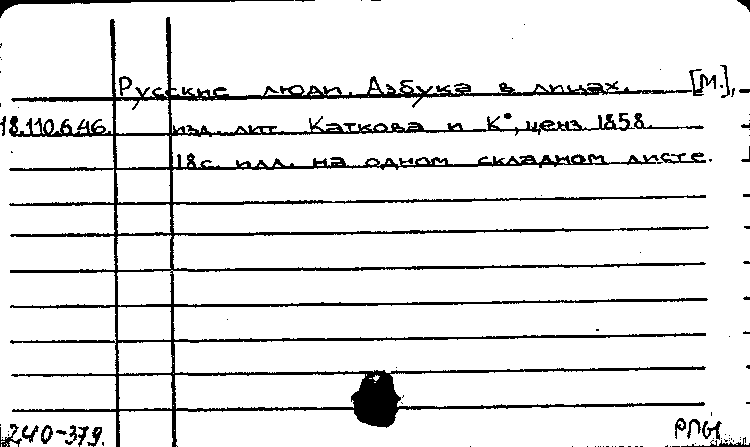 Русские люди. Азбука в лицах. [М.],
18.110.6.46. изд. лит. Каткова и К°, ценз. 1858.
18с. илл. на одном складном листе.
240-379.